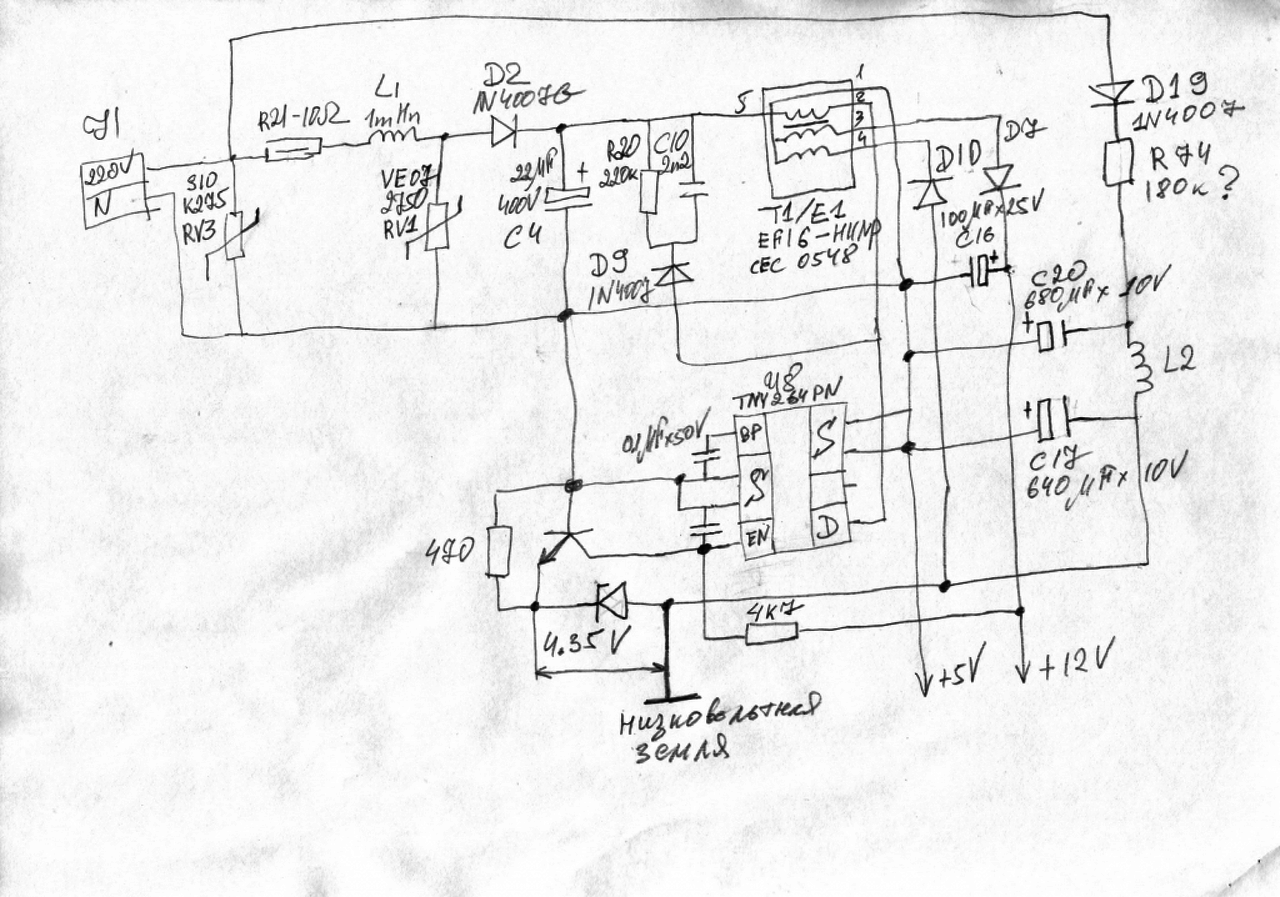 J1
220V
N
S10
K275
RV3
R21-10Ω
L1
1mHn
VE07
2750
RV1
D2
1N4007G
22µF
400V
C4
R20
220k
C10
2n2
D9
1N4007
5
1
2
3
4
T1/E1
CEC 0548
D10
D7
100µFx25V
C16
D19
1N4007
R74
180k?
C20
680µFx 10V
L2
C17
640µFx 10V
U8
TNY264PN
BP
S
EN
S
D
0,1µFx50V
470
4.35V
4k7
+5V
+12V
низковольтная
земля